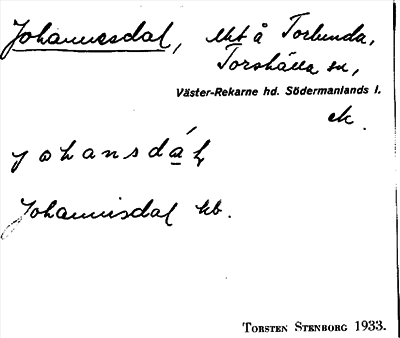 Johannesdal, lht å Torlunda,
Torshälla sn,
Väster-Rekarne hd. Södermanlands l.
ek.
johansdáļ
Johannisdal kb.
TORSTEN STENBORG 1933.